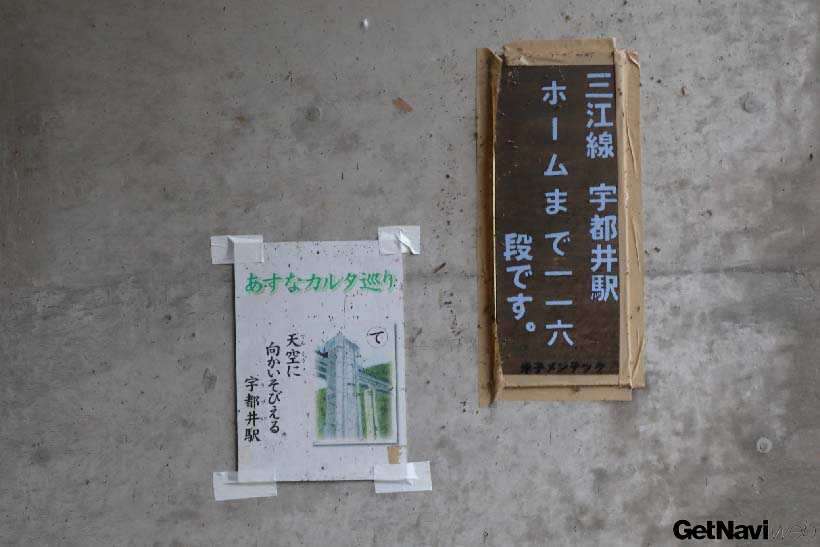 三江線 宇都井駅
ホームまで一一六
段です。
米子メンテック
あすなカルタ巡り
て
天空に
向かいそびえる
宇都井駅
GetNavi web